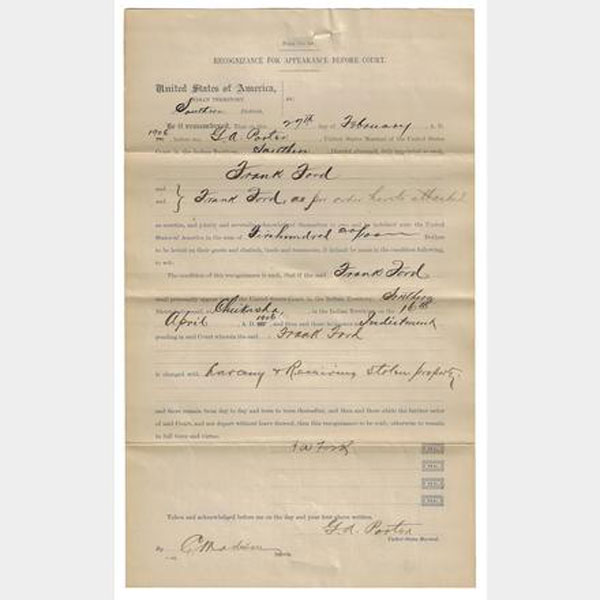 RECOGNIZANCE FOR APPEARANCE BEFORE COURT.
United States of America,
INDIAN TERRITORY,
Southern
Be it remembered, That on the 27th day of February A. D.
1906 before me G. A. Porter, United States Marshal of the United States
Court in the Indian Territory, Southern
Frank Ford
and
and Frank Ford, as per order hereto attached
as sureties, and jointly and severally acknowledged themselves to owe and be indebted unto the United
States of America in the sum of Five hundred no/100 Dollars
to be levied on their goods and chattels, lands and tenements, if default be made in the condition following,
to wit:
The condition of this recognizance is such, that if the said Frank Ford
shall personally appear before the United States Court in the Indian Territory, Southern
at Chickasha, in the Indian Territory, on the 16th
April A. D. 1906, and then and there to answer Indictment
pending in said Court wherein the said Frank Ford
is charged with Larceny & Receiving stolen property.
and there remain from day to day and term to term thereafter, and then and there abide the further order
of said Court, and not depart without leave thereof, then this recognizance to be void; otherwise to remain
in full force and virtue.
Ford
Taken and acknowledged before me on the day and year first above written.
G. A. Porter
United States Marshal.
By
Deputy.